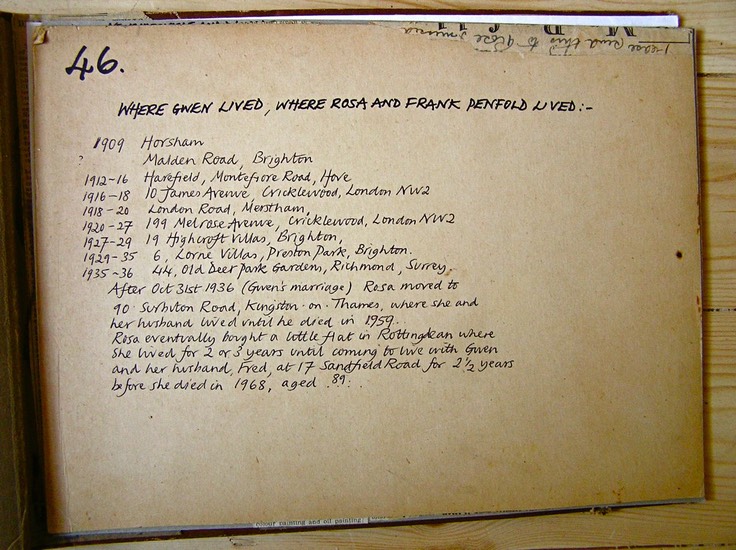 Please send this to Rose
46.
WHERE GWEN LIVED, WHERE ROSA AND FRANK PENFOLD LIVED:-
1909 Horsham
? Malden Road, Brighton
1912-16 Harefield, Montefiore Road, Hove
1916-18 10 James Avenue Cricklewood, London NW2
1918-20 London Road, Merstham,
1920-27 199 Melrose Avenue, Cricklewood, London NW2
1927-29 19 Highcroft Villas, Brighton,
1929-35 6, Lorne Villas, Preston Park, Brighton.
1935-36 44, Old Deer Park Gardens, Richmond, Surrey.
After Oct 31st 1936 (Gwen's marriage) Rosa moved to
90 Surbiton Road, Kingston-on-Thames, where she and
her husband lived until he died in 1959.
Rosa eventually bought a little flat in Rottingdean where
she lived for 2 or 3 years until coming to live with Gwen
and her husband, Fred, at 17 Sandfield Road for 2 1/2 years
before she died in 1968, aged 89.
colour painting and oil painting: